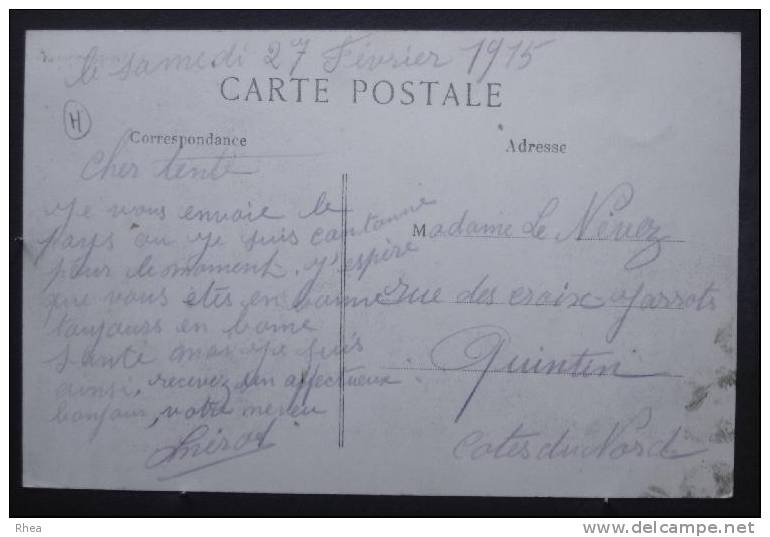 le Samedi 27 Février 1915
CARTE POSTALE
H
Correspondance
Adresse
Cher tente
Je vous envoie le
pays ou je suis cantonné
pour le moment. J'espère
que vous etes en bonne
toujours en bonne
santé moi je suis
ainsi, recevez un affectueux
bonjour, votre neveu
Madame Le Nevez
rue des croix Jarrots
Quintin
Cotes du Nord
Rhea
http://www.delcampe.net